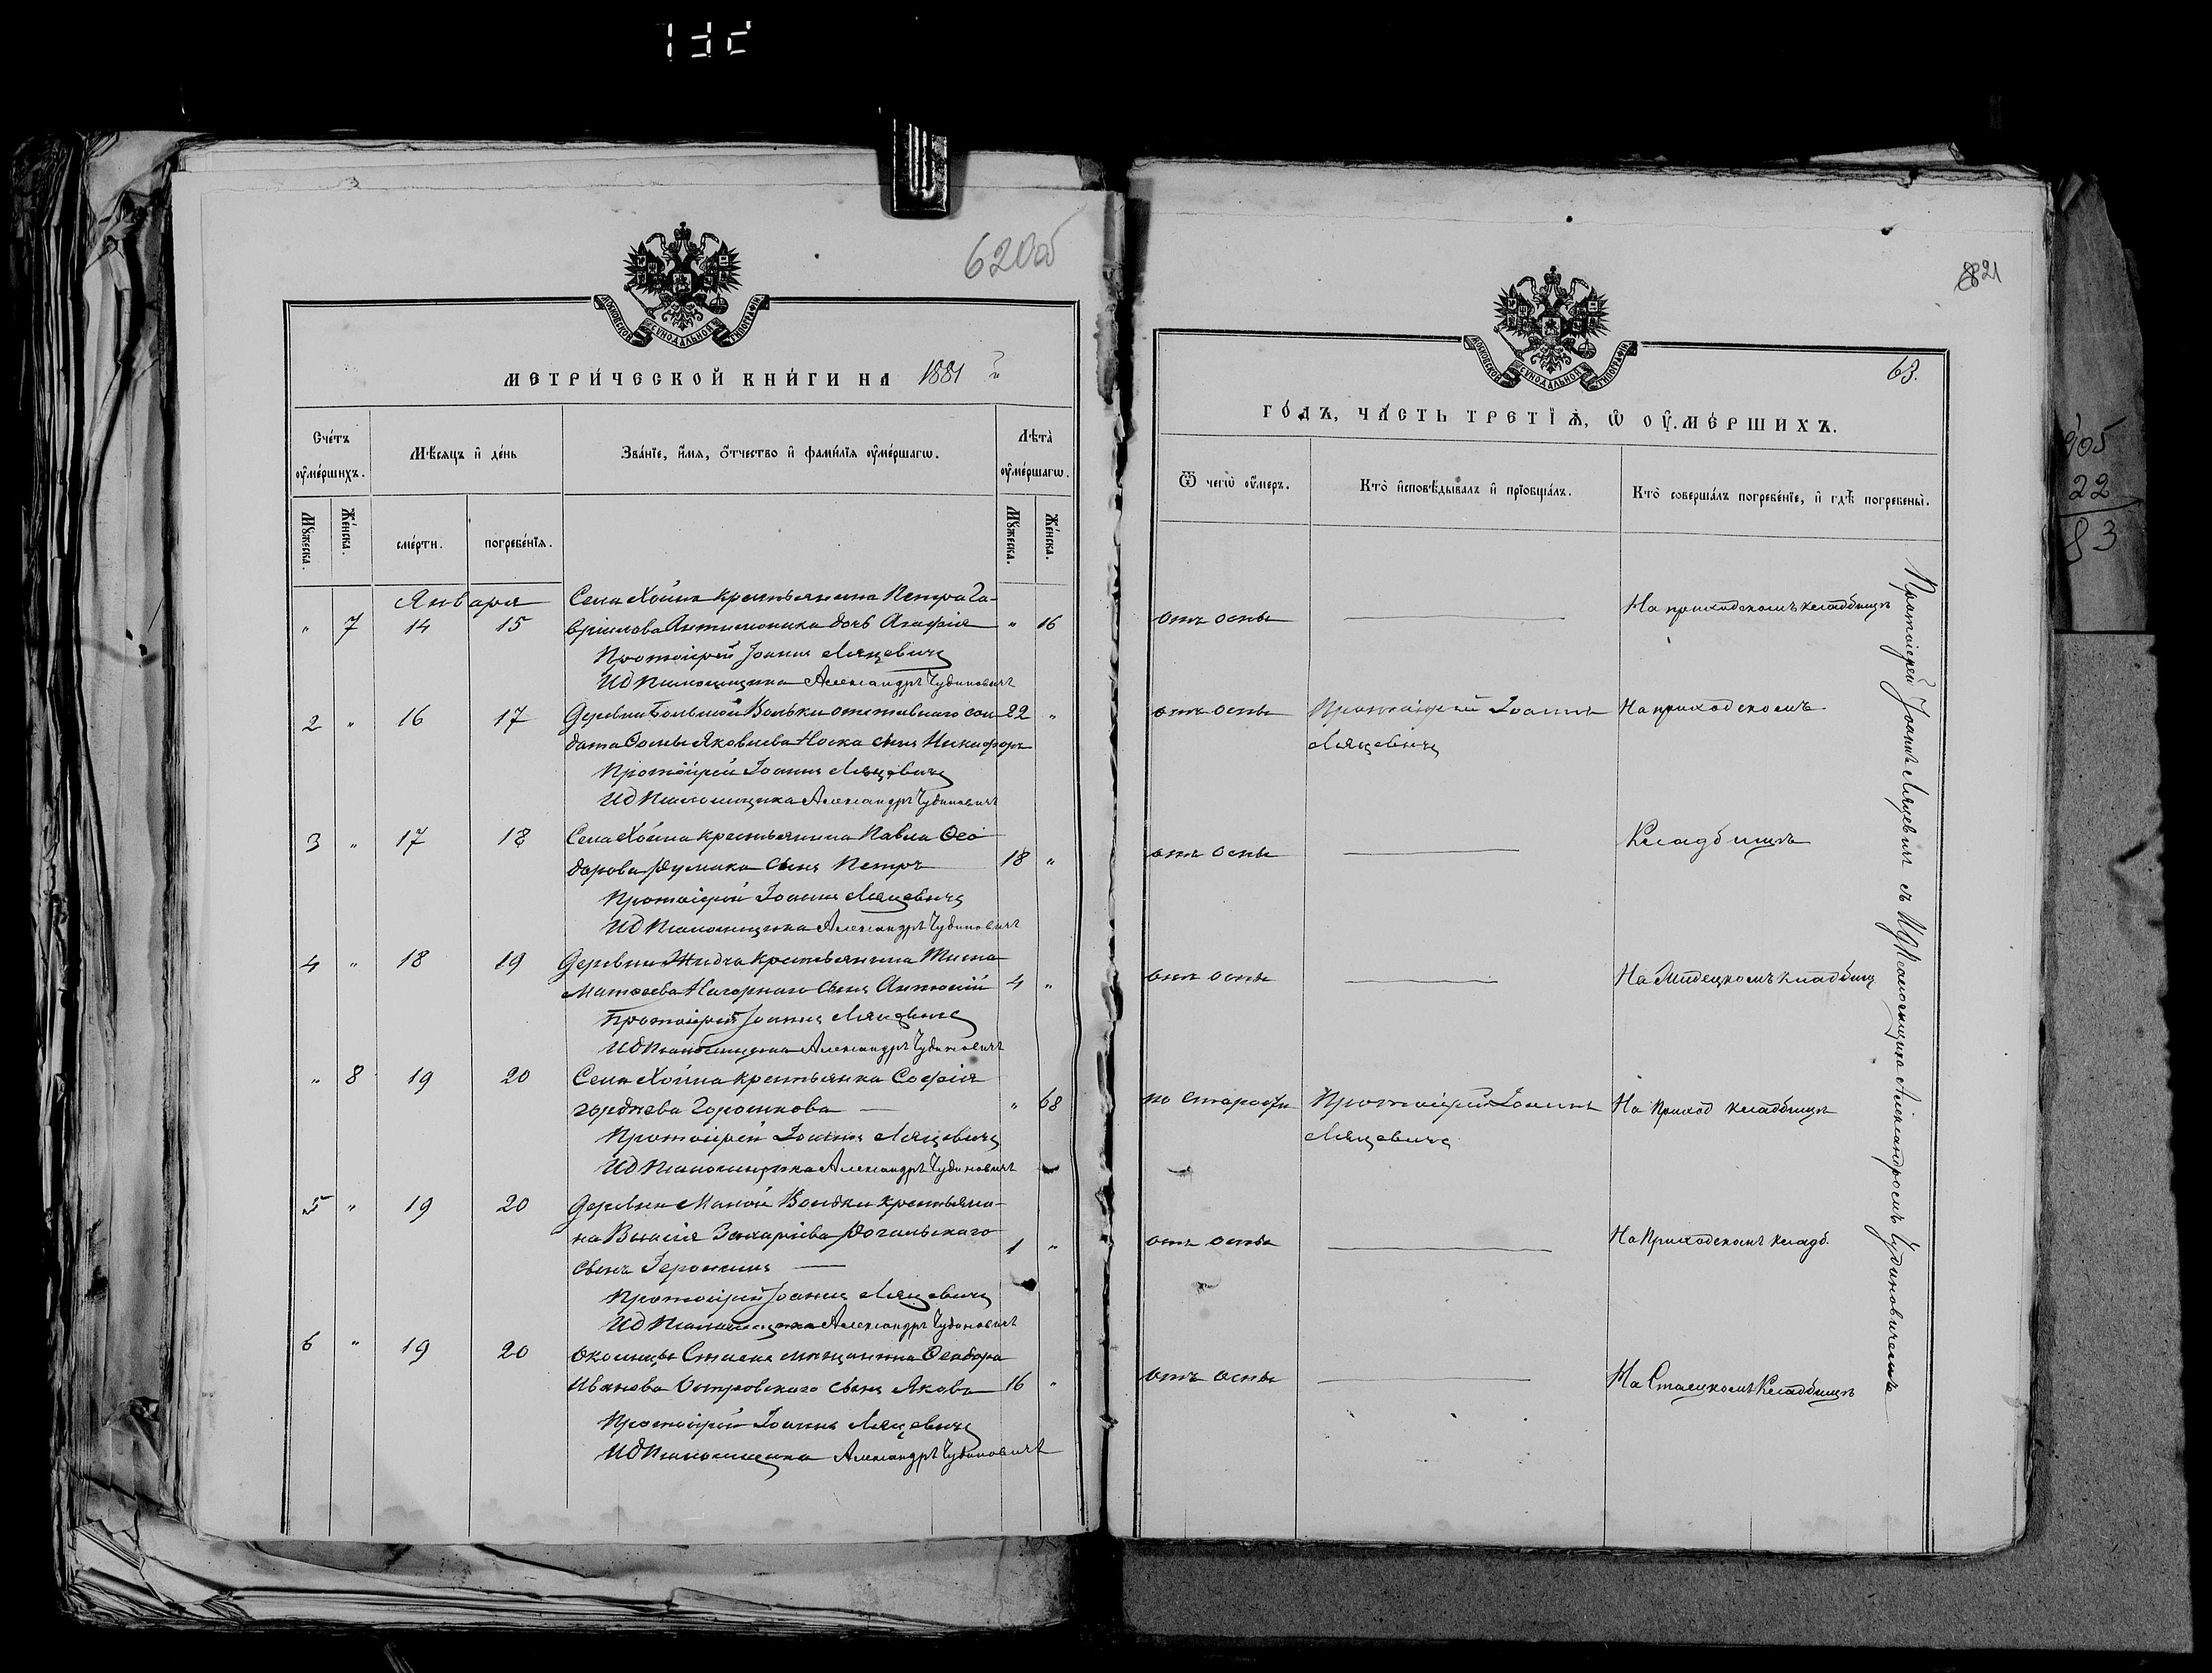 620об
МОСКОВСКОЙ СѴНОДАЛЬНОЙ ТИПОГРАФІИ
МЕТРИ́ЧЕСКОЙ КНИ́ГИ НА 1881 й
Сче́тъ ѹ҆ме́ршихъ.
Мѣ́сяцъ и҆ де́нь
Зва́нїе, и҆́мѧ, ѻ҆́тчество и҆ фами́лїѧ ѹ҆ме́ршагѡ.
Лѣ́та ѹ҆ме́ршагѡ.
Мꙋ́жеска.
Же́нска.
сме́рти.
погребе́нїѧ.
Мꙋ́жеска.
Же́нска.
Января
Села Хойна крестьянина Петра Га-
" 7 14 15 вріилова Антипоника дочь Агафія " 16
Протоіерей Іоаннъ Ляцевичъ
ИД Псаломщика Александръ Чудиновичъ
2 " 16 17 Деревни Большой Вольки отставного сол- 22 "
дата Ѳомы Яковлева Носка сынъ Никифоръ
Протоіерей Іоаннъ Ляцевичъ
ИД Псаломщика Александръ Чудиновичъ
3 " 17 18 Села Хойна крестьянина Павла Ѳео-
дорова сынъ Петръ 18 "
Протоіерей Іоаннъ Ляцевичъ
ИД Псаломщика Александръ Чудиновичъ
4 " 18 19 Деревни Жидча крестьянина Тита
Матѳеева Нагорнаго сынъ Антоній 4 "
Протоіерей Іоаннъ Ляцевичъ
ИД Псаломщика Александръ Чудиновичъ
" 8 19 20 Села Хойна крестьянка Софія
Горошкова " 68
Протоіерей Іоаннъ Ляцевичъ
ИД Псаломщика Александръ Чудиновичъ
5 " 19 20 Деревни Малой Вольки крестьяни-
на Василія Захаріева сынъ Іеронимъ 1 "
Протоіерей Іоаннъ Ляцевичъ
ИД Псаломщика Александръ Чудиновичъ
6 " 19 20 Околицы Стаекъ мѣщанина Ѳеодора
Иванова Островскаго сынъ Яковъ 16 "
Протоіерей Іоаннъ Ляцевичъ
ИД Псаломщика Александръ Чудиновичъ
821
МОСКОВСКОЙ СѴНОДАЛЬНОЙ ТИПОГРАФІИ
63.
ГО́ДЪ, ЧА́СТЬ ТРЕТЇѦ, Ѡ ОУ҆МЕ́РШИХЪ.
Ѿ чегѡ̀ ѹ҆́мер.
Кто̀ и҆сповѣ́дывалъ и҆ прїѻбща́лъ.
Кто̀ соверша́лъ погребе́нїе, и҆ гдѣ̀ погребены̀.
отъ оспы На приходскомъ кладбищѣ
отъ оспы Протоіерей Іоаннъ На приходскомъ
Ляцевичъ
отъ оспы Кладбищѣ
отъ оспы На кладбищ
по старости Протоіерей Іоаннъ На Приход кладбищѣ
Ляцевичъ
отъ оспы На Приходскомъ кладб.
отъ оспы На Стаецкомъ Кладбищѣ
Протоіерей Іоаннъ Ляцевичъ съ ИД Псаломщика Александромъ Чудиновичемъ
905
22
83